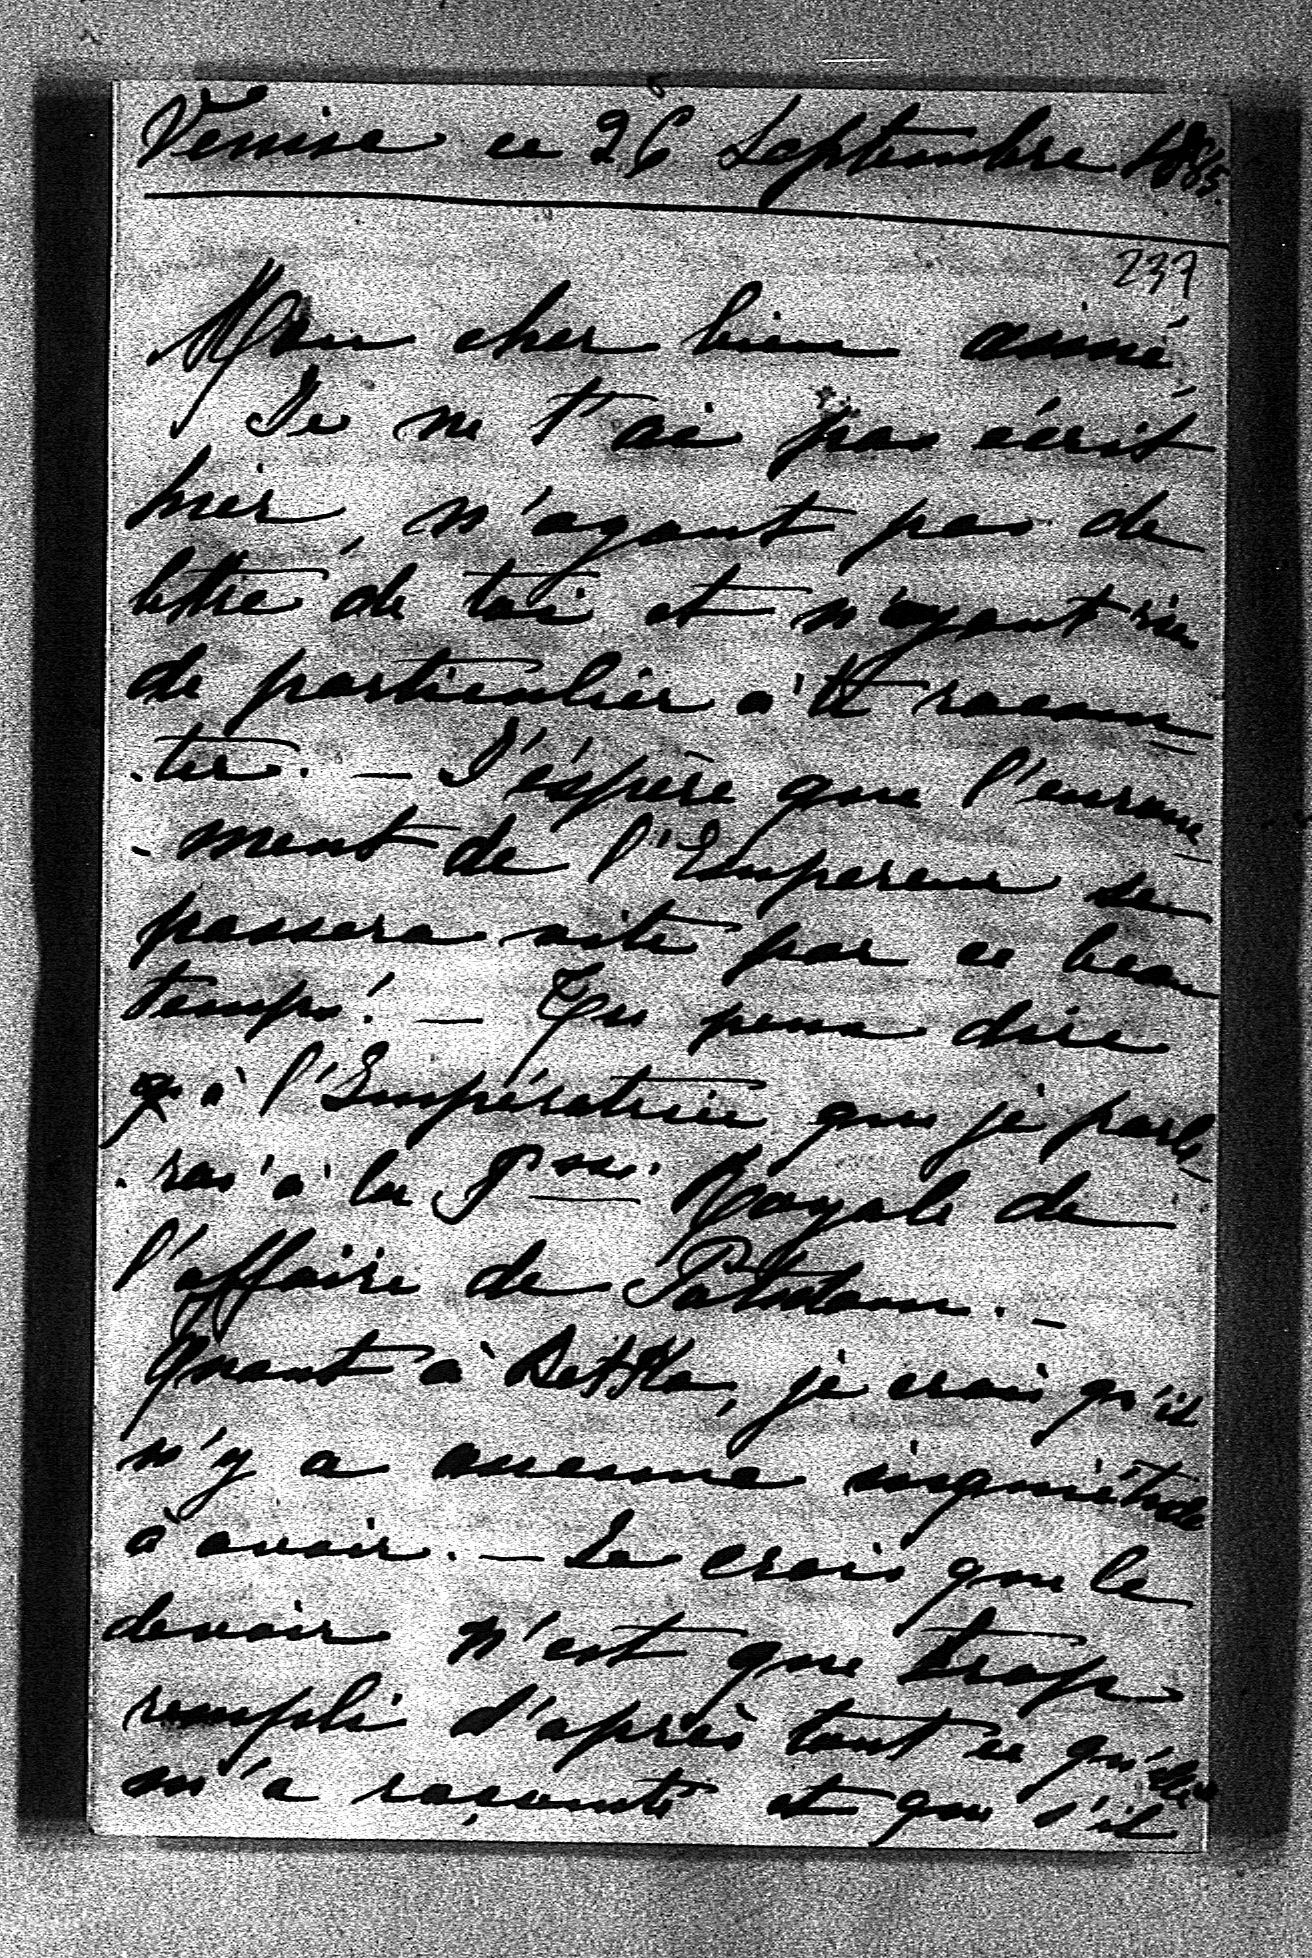 Venise ce 26 Septembre 1885.
237
Mon cher bien aimé,
Je ne t'ai pas écrit
hier, n'ayant pas de
lettre de toi et n'ayant rien
de particulier à te racon-
-ter. — J'éspère que l'enroue-
-ment de l'Empereur se
passera vite par ce beau
temps! — Tu peux dire
à l'Impératrice que je parle-
-rai à la Psse. Royale de
l'affaire de Potsdam. —
Quant à Bettka, je crois qu'il
n'y a aucune inquiétude
à avoir. — Je crois que le
devoir n'est que trop
rempli d'après tout ce qu'elle
m'a raconté et que s'il